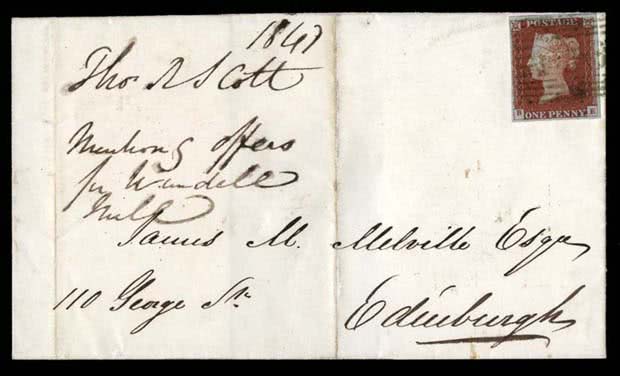 1847
Thos R Scott
Mentiong offers
for Wundell
Mill
James M. Melville Esqr
110 George St.
Edinburgh
POSTAGE
ONE PENNY